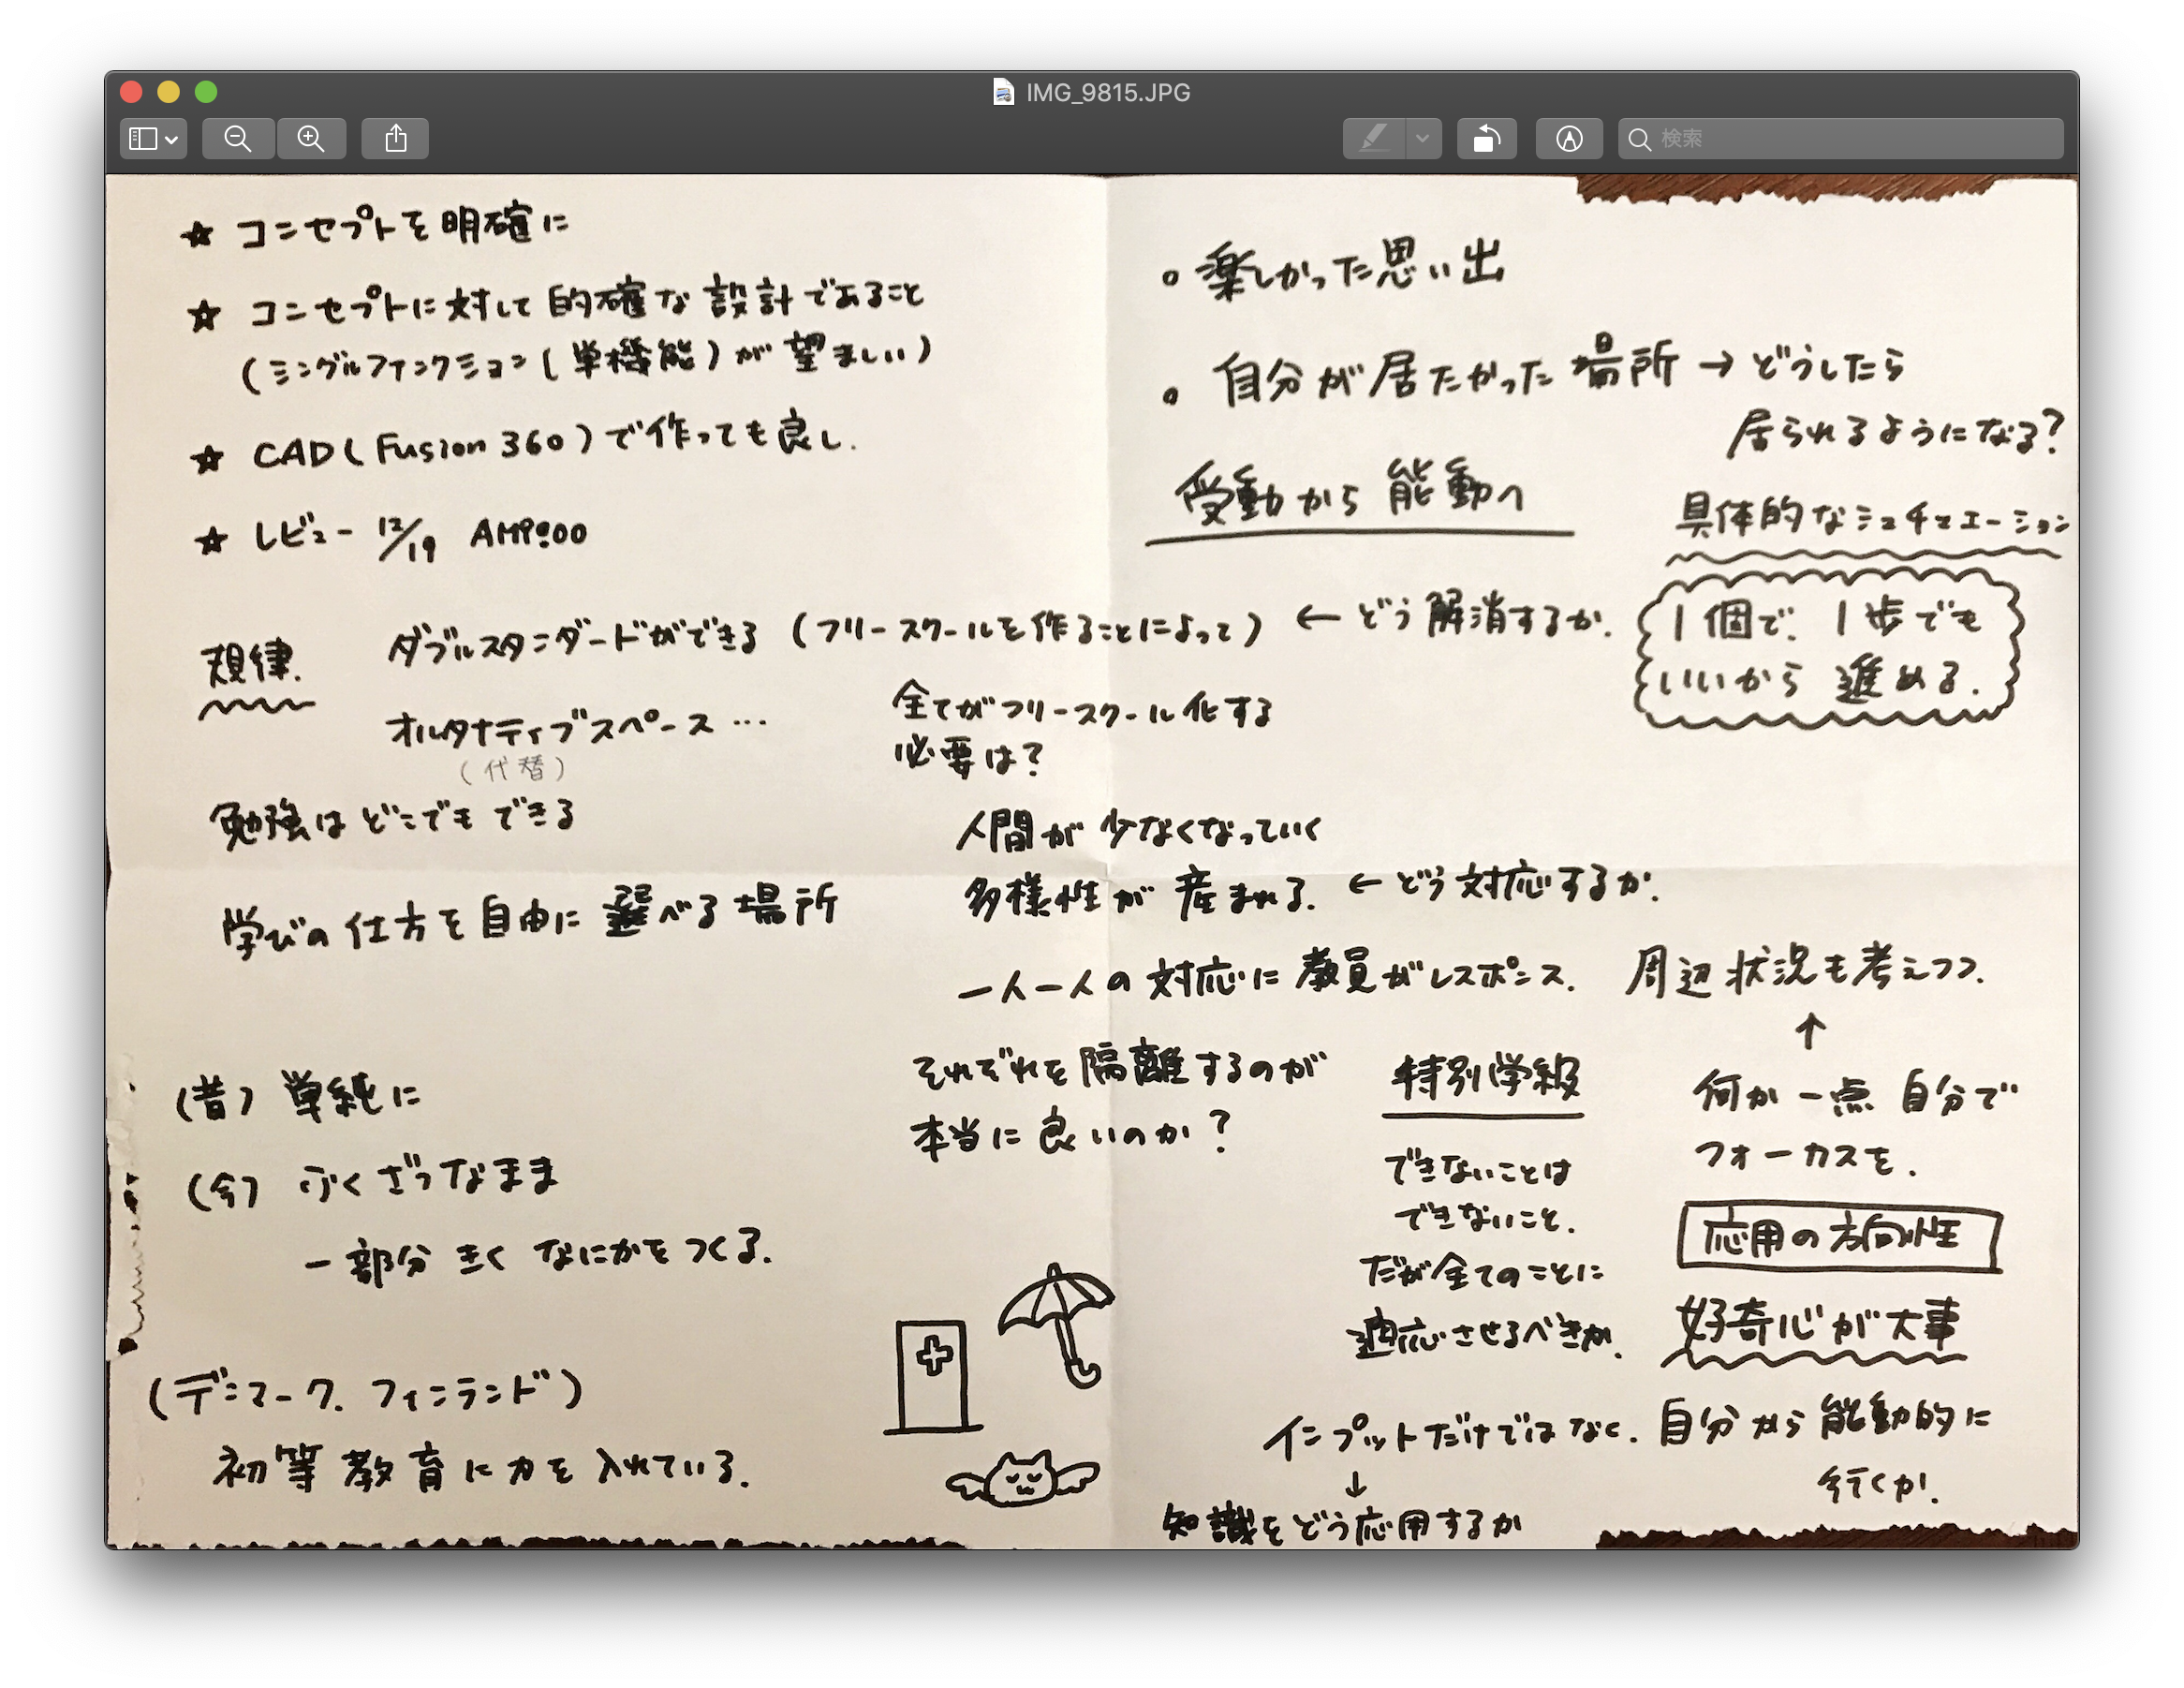 IMG_9815.JPG
検索
☆ コンセプトを明確に
☆ コンセプトに対して的確な設計であること
(シングルファンクション(単機能)が望ましい)
☆ CAD(Fusion 360)で作っても良し.
☆ レビュー 12/19 AM9:00
規律.
ダブルスタンダードができる (フリースクールを作ることによって) ← どう解消するか.
オルタナティブスペース …
(代替)
全てがフリースクール化する
必要は?
勉強はどこでもできる
人間が少なくなっていく
多様性が産まれる. ← どう対応するか.
学びの仕方を自由に選べる場所
一人一人の対応に教員がレスポンス.
それぞれを隔離するのが
本当に良いのか?
(昔) 単純に
(今) ふくざつなまま
一部分 きく なにかをつくる.
(デンマーク. フィンランド)
初等教育に力を入れている.
○ 楽しかった思い出
○ 自分が居たかった場所 → どうしたら
居られるようになる?
受動から能動へ
具体的なシュチュエーション
1個で. 1歩でも
いいから 進める.
周辺状況も考えつつ.
↑
何か一点 自分で
フォーカスを.
特別学級
できないことは
できないこと.
だが全てのことに
適応させるべきか.
応用の方向性
好奇心が大事
インプットだけではなく. 自分から能動的に
行くか.
↓
知識をどう応用するか